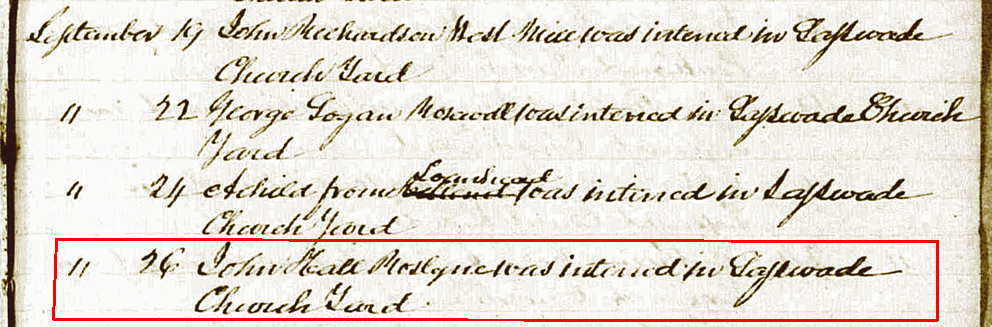 September 19 John Richardson West Mill was interred in Lasswade
Church Yard
" 22 George Logan Rosewell was interred in Lasswade Church
Yard
" 24 A child from Loanhead was interred in Lasswade
Church Yard
" 26 John Hall Roslyne was interred in Lasswade
Church Yard